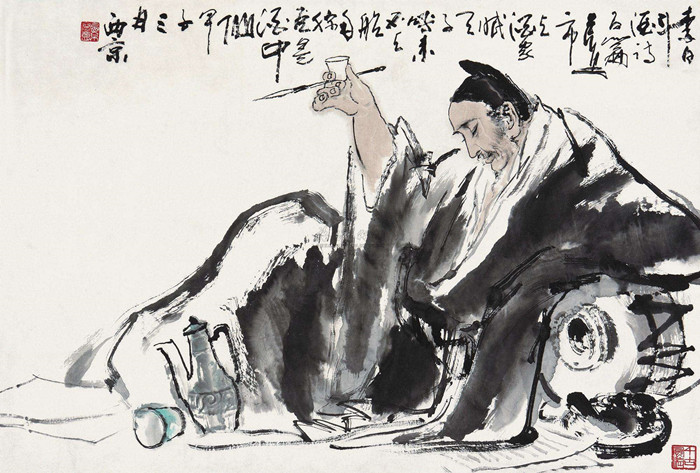 李白
斗酒詩
百篇
長安
市
上酒家
眠
天
子
呼来
不上
船
自
称
臣是
酒中
仙
甲
子
三
月
西京